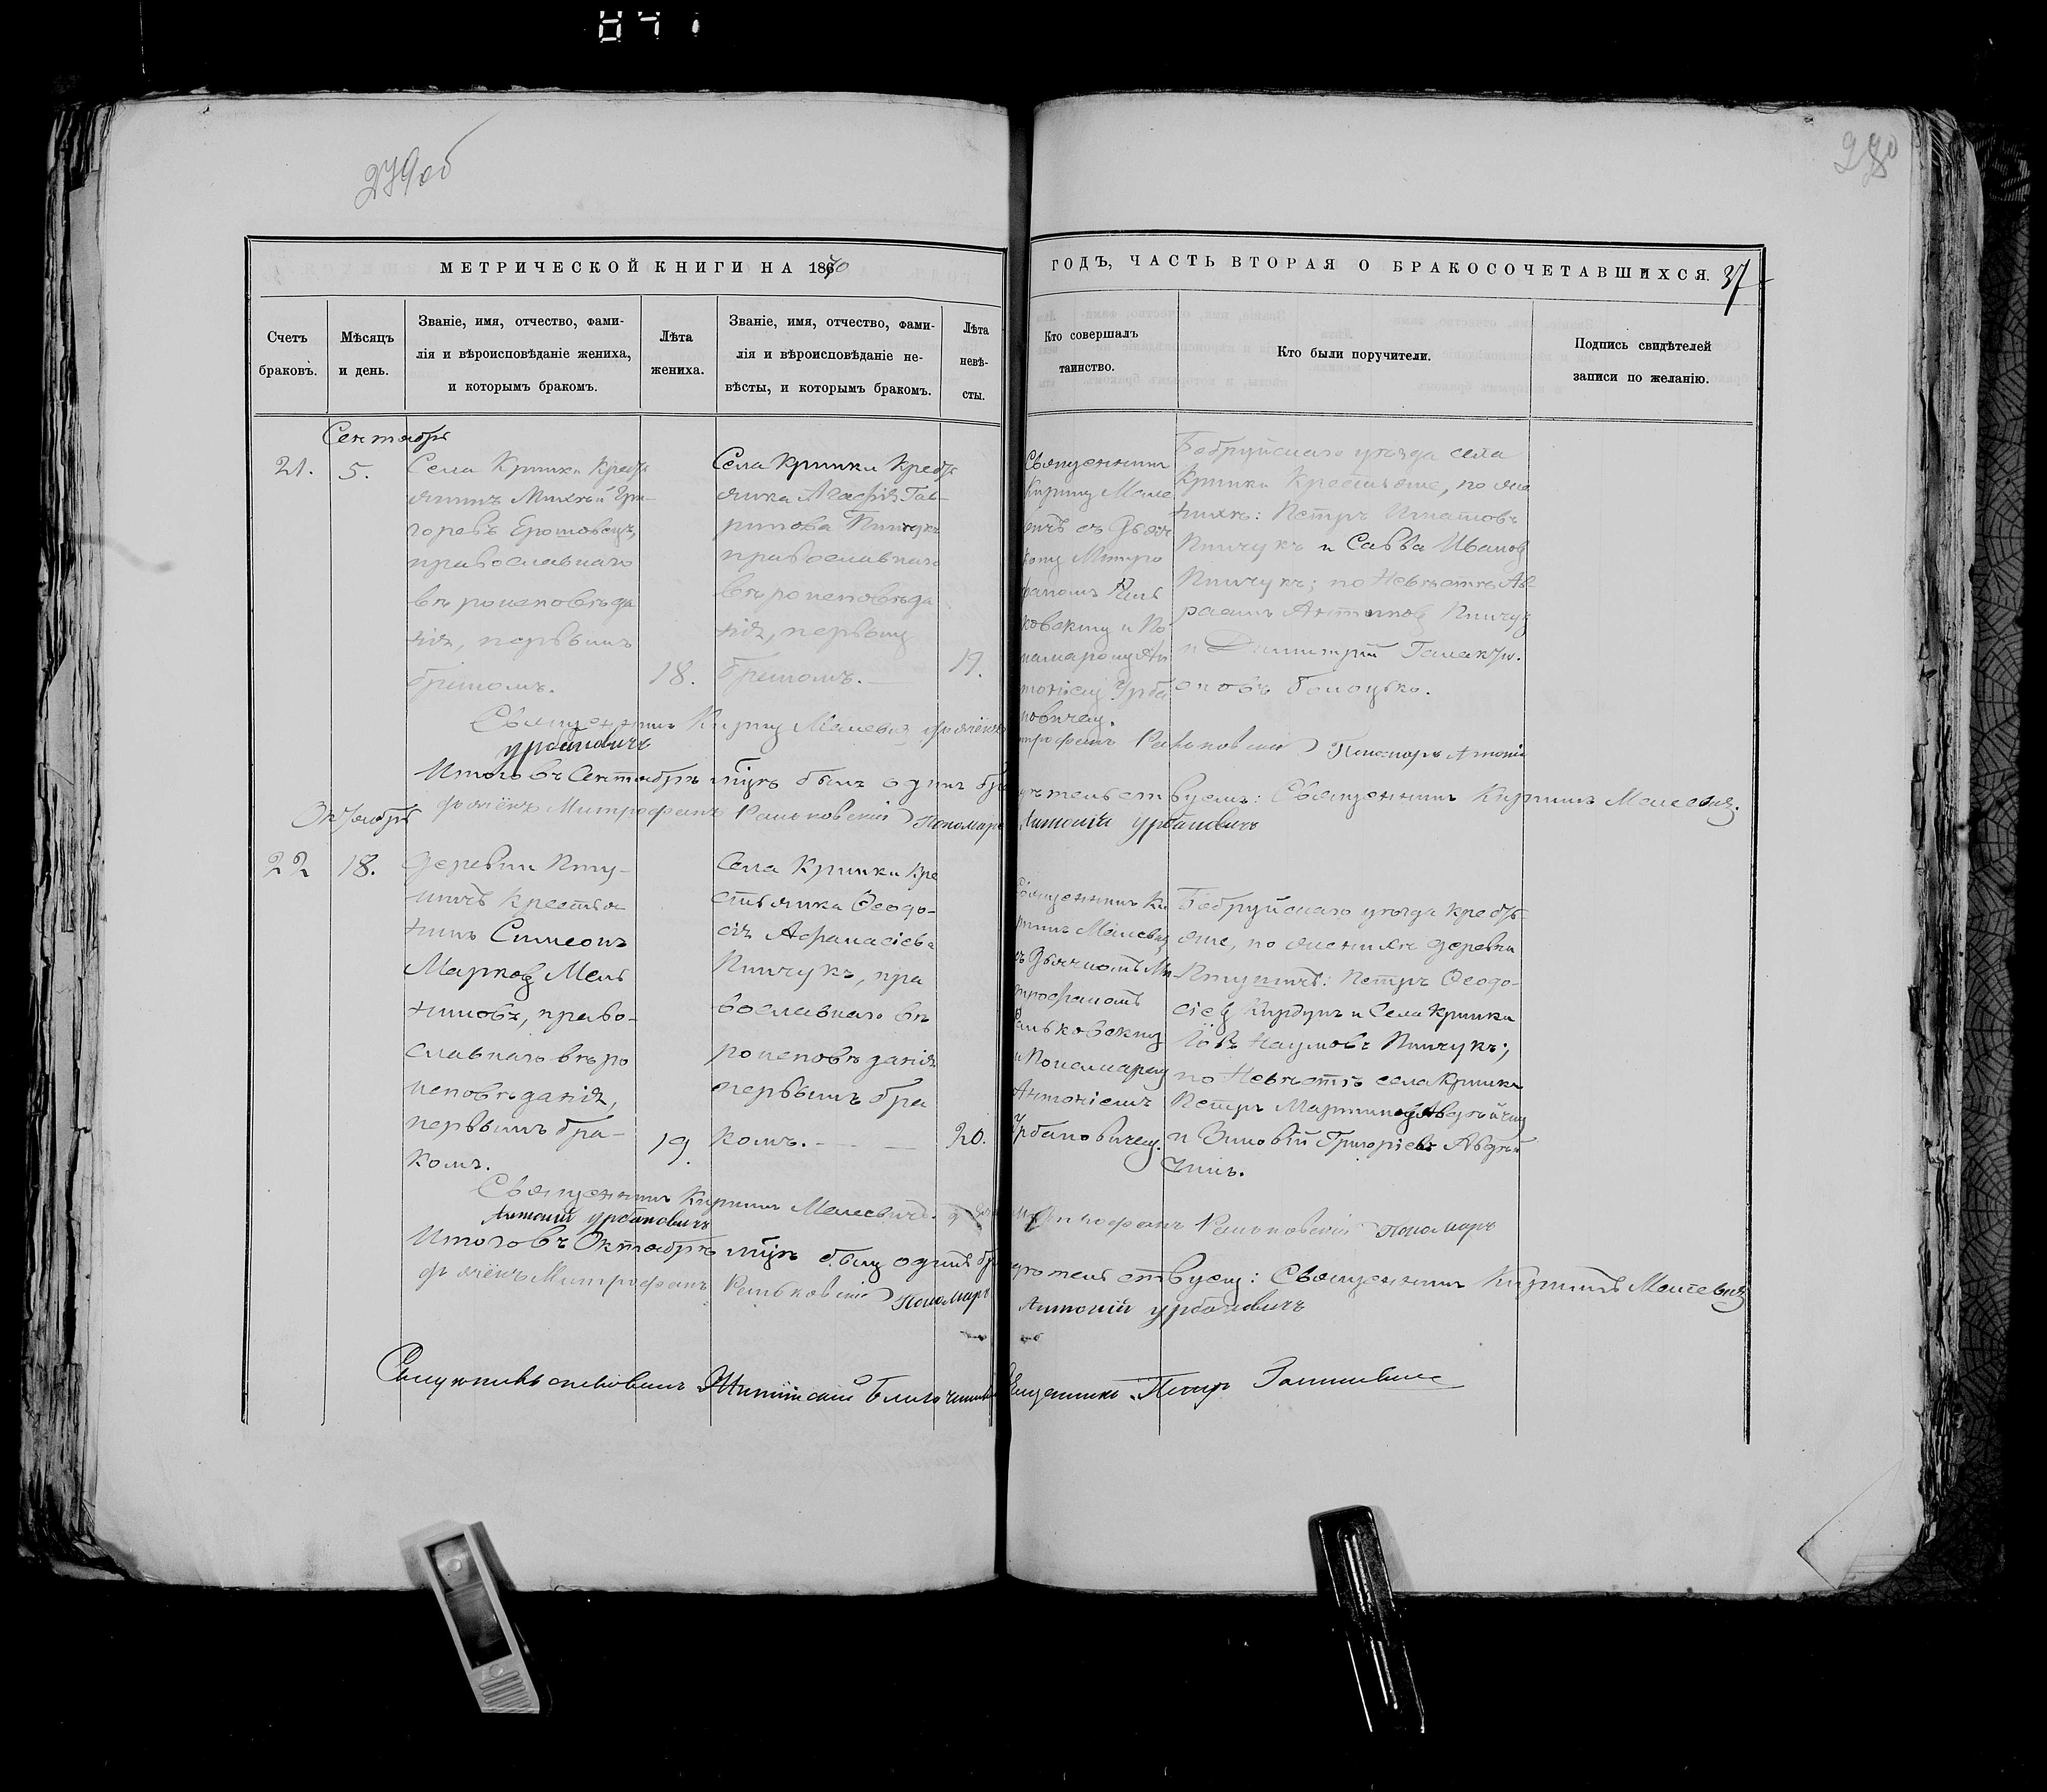 841
279 об
280
МЕТРИЧЕСКОЙ КНИГИ НА 1870
ГОДЪ, ЧАСТЬ ВТОРАЯ О БРАКОСОЧЕТАВШИХСЯ. 37
Счетъ
браковъ.
Мѣсяцъ
и день.
Званіе, имя, отчество, фами-
лія и вѣроисповѣданіе жениха,
и которымъ бракомъ.
Лѣта
жениха.
Званіе, имя, отчество, фами-
лія и вѣроисповѣданіе не-
вѣсты, и которымъ бракомъ.
Лѣта
невѣ-
сты.
Кто совершалъ
таинство.
Кто были поручители.
Подпись свидѣтелей
записи по желанію.
Сентябрь
21.
5.
Села Кринки Кресть
янинъ Михей Гри-
горевъ
православнаго
вѣроисповѣда
нія, первымъ
бракомъ.
18.
Села Кринки Кресть
янка Агафія Гав-
рилова Пинчукъ
православнаго
вѣроисповѣда
нія, первымъ
бракомъ.
19.
Священникъ
Кирилъ Мале
вичъ съ Дьяч
комъ Митро
фаномъ Раль
ковскимъ и По
намаромъ Ан
тоніемъ Урба
новичемъ.
Бобруйскаго уѣзда села
Кринки Крестьяне, по же
нихѣ: Петръ Игнатовъ
Пинчукъ и Савва Ивановъ
Пинчукъ; по Невѣстѣ Ав-
раамъ Пинчукъ
и Димитрій Галакті-
оновъ
Священникъ Кирилъ Малевичъ дьячёкъ Митрофанъ Ральковскій Пономаръ Антоній
Урбановичъ
Итого въ Сентябрѣ мѣсяцѣ былъ одинъ бракъ
свидѣтельствуемъ: Священникъ Кирилъ Малевичъ.
дьячёкъ Митрофанъ Ральковскій Пономаръ Антоній Урбановичъ
Октябрь
22
18.
деревни Пту-
шичъ Крестья
нинъ Симеонъ
Марковъ Мель
никовъ, право-
славнаго вѣро
исповѣданія,
первымъ бра-
комъ.
19.
Села Кринки Кре
стьянка Ѳеодо-
сія Афанасіева
Пинчукъ, пра
вославнаго вѣ
роисповѣданія
первымъ бра
комъ.
20.
Священникъ Ки
рилъ Малевичъ
съ Дьячкомъ Ми
трофаномъ
Ральковскимъ
и Пономаремъ
Антоніемъ
Урбановичемъ.
Бобруйскаго уѣзда Кресть
яне, по женихѣ деревни
Петръ Ѳеодо-
сіевъ и Села Кринки
Іовъ Наумовъ Пинчукъ;
по Невѣстѣ села Кринки
Петръ Мартиновъ Авдѣйчикъ
и Зиновій Григоріевъ Авдѣй
чикъ.
Священникъ Кирилъ Малевичъ. дьячёкъ Митрофанъ Ральковскій Пономаръ
Антоній Урбановичъ
Итого въ Октябрѣ мѣсяцѣ былъ одинъ бракъ
свидѣтельствуемъ: Священникъ Кирилъ Малевичъ
дьячёкъ Митрофанъ Ральковскій Пономаръ Антоній Урбановичъ
Благочинный Священникъ Петръ